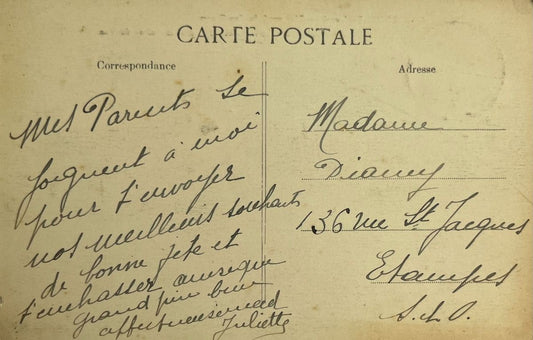 CARTE POSTALE
Correspondance
Mes Parents se
joignent à moi
pour t'envoyer
nos meilleurs souhaits
de bonne fête et
t'embrasser ainsi que
grand père bien
affectueusement
Juliette
Adresse
Madame
136 rue St. Jacques
Etampes
S. & O.